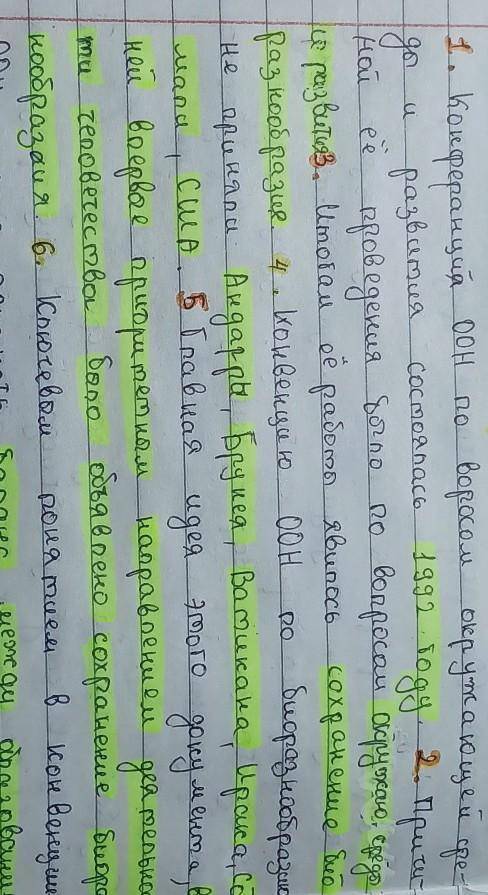 1. Конференция ООН по ворасом окружающей сре-
ды и развития состоялась 1992 году 2. Причи
ной её проведения было по вопросам окружаю, среды
и развития 3. Итогам её работы явилось сохранение био
разнообразие 4. Конвенцию ООН по биоразнообразию
не приняли: Андагры, Брунея, Ватикана, Ирака, Со
мали, США. 5 Главная идея этого документа, в
ней впервое приоритетном направлением деятельнос
ти человечества было объявлено сохранение биора
нообразия. 6. Ключевом понятием в конвенции
баланс между